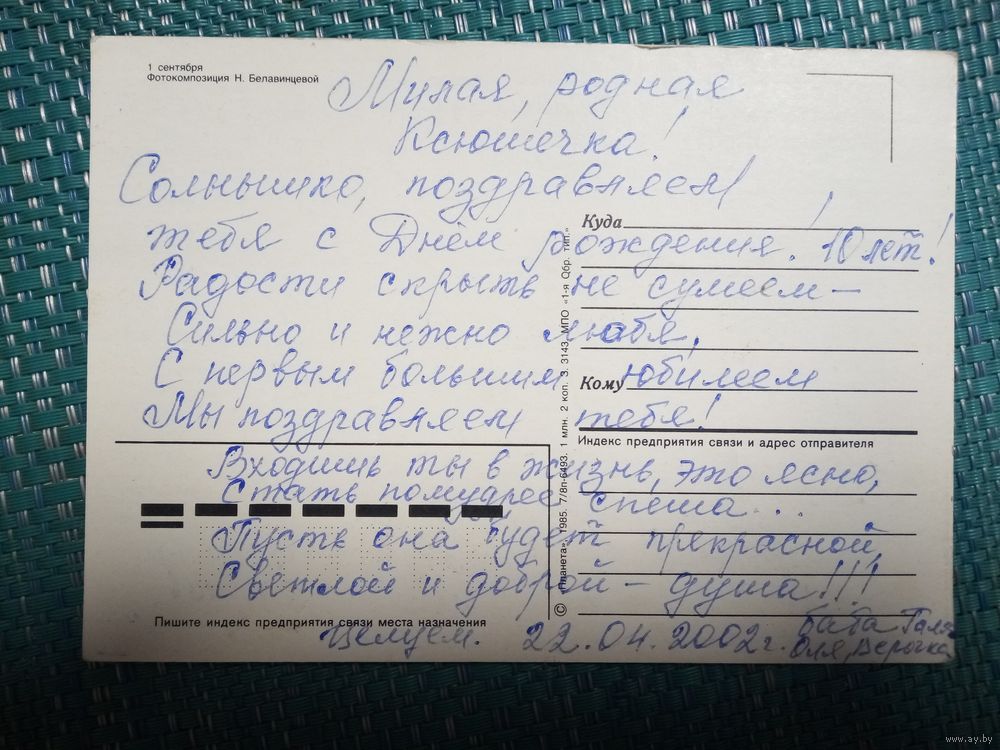 1 сентября
Фотокомпозиция Н. Белавинцевой
Милая, родная
Ксюшечка!
Солнышко, поздравляем
тебя с Днём рождения! 10 лет!
Радости скрыть не сумеем —
Сильно и нежно любя,
С первым большим юбилеем
Мы поздравляем тебя!
Входишь ты в жизнь, это ясно,
Стать помудрее спеша...
Пусть она будет прекрасной,
Светлой и доброй – душа!!!
Целуем. 22.04.2002 г. баба Галя
Оля, Верочка
Куда
Кому
Индекс предприятия связи и адрес отправителя
Пишите индекс предприятия связи места назначения
© «Планета», 1985. 7/8п-6493. 1 млн. 2 коп. З. 3143. МПО «1-я Обр. тип.»
www.ay.by